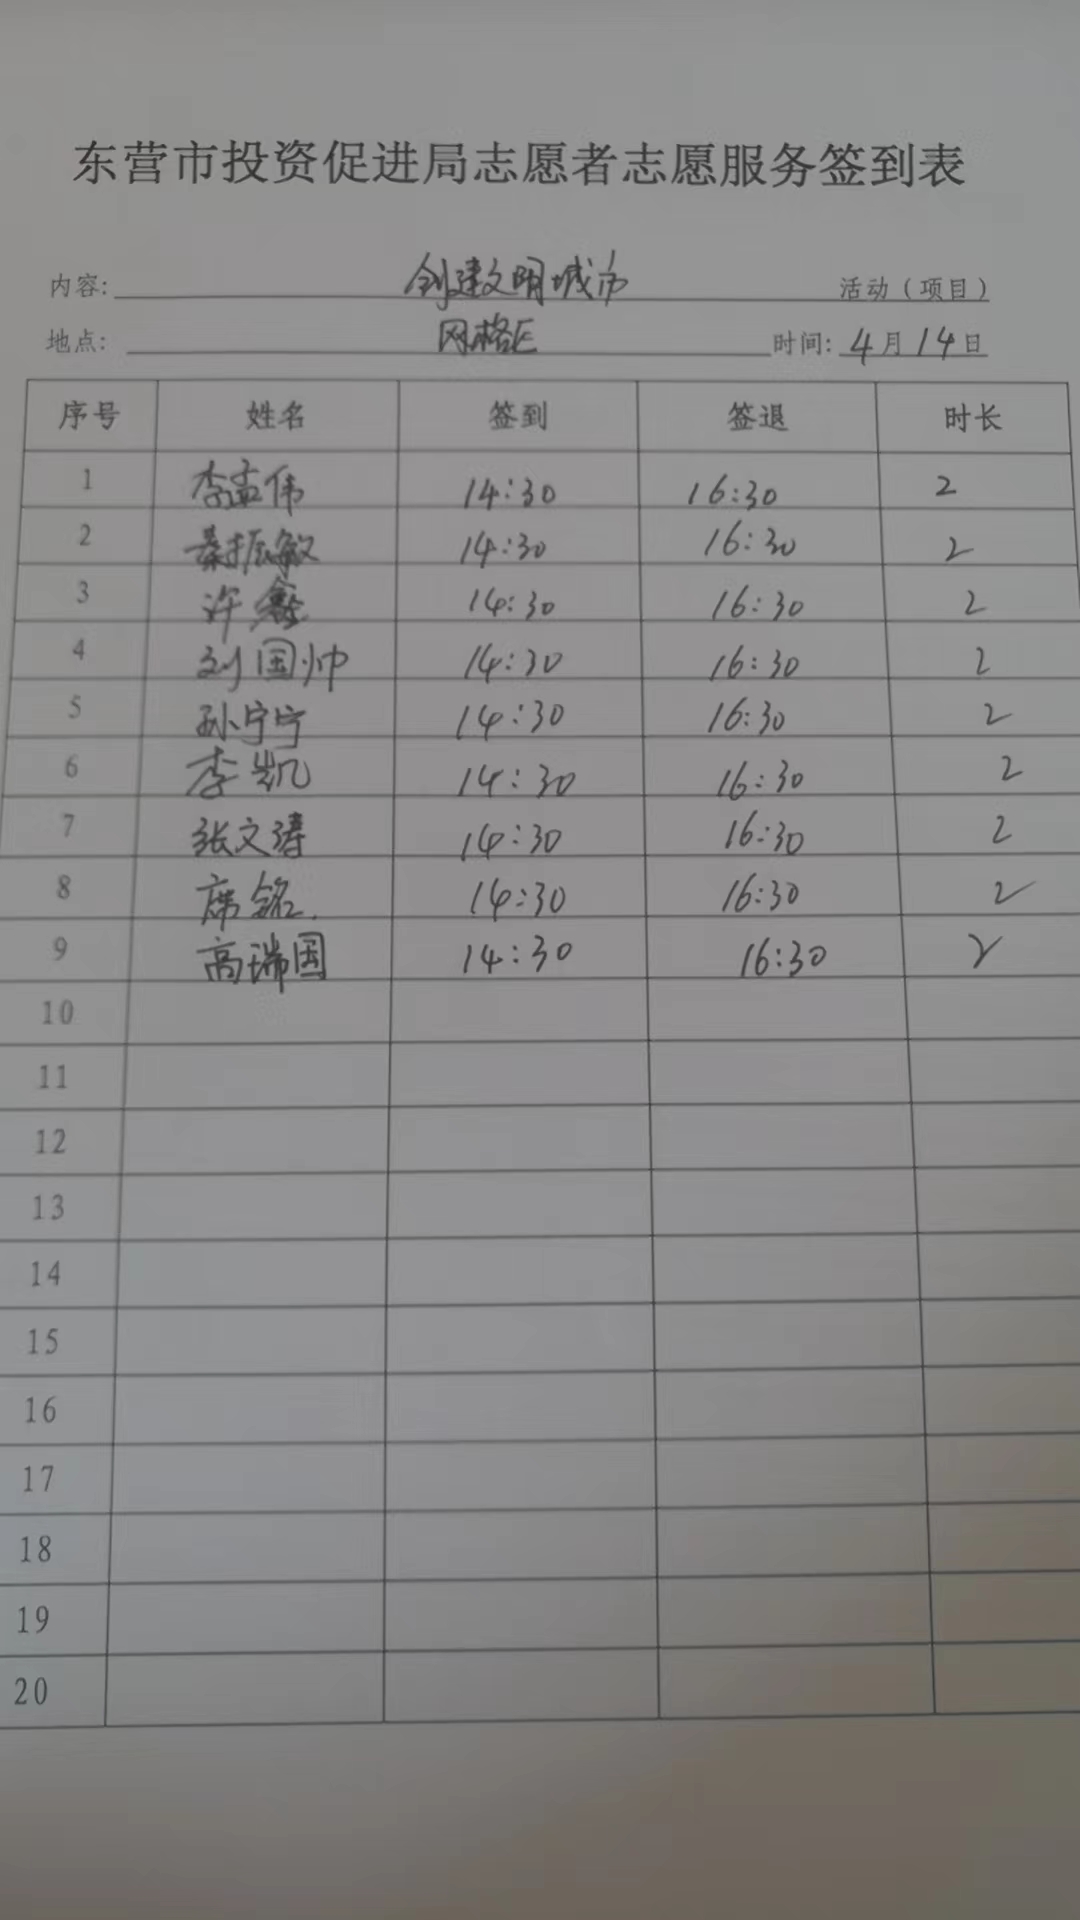 东营市投资促进局志愿者志愿服务签到表
内容: 创建文明城市 活动（项目）
地点: 网格区 时间: 4月14日
序号 姓名 签到 签退 时长
1 李孟伟 14:30 16:30 2
2 秦振敏 14:30 16:30 2
3 许鑫 14:30 16:30 2
4 刘国帅 14:30 16:30 2
5 孙宁宁 14:30 16:30 2
6 李凯 14:30 16:30 2
7 张文涛 14:30 16:30 2
8 席铭 14:30 16:30 2
9 高瑞国 14:30 16:30 2
10
11
12
13
14
15
16
17
18
19
20